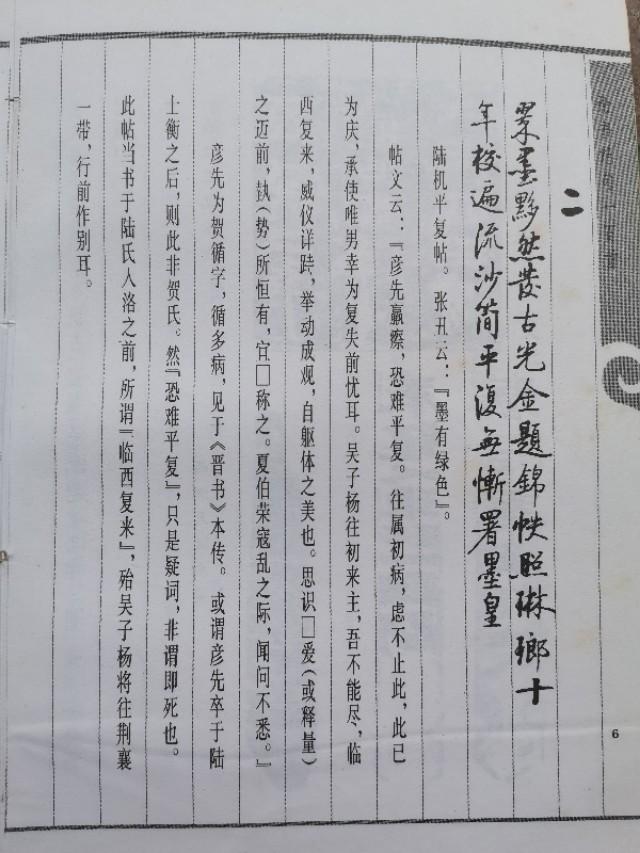 二
翠墨黟然发古光金题錦帙照琳瑯十
年校遍流沙简平復無慚署墨皇
陆机平复帖。张丑云：『墨有绿色』。
帖文云：『彦先羸瘵，恐难平复。往属初病，虑不止此，此已
为庆，承使唯男幸为复失前忧耳。吴子杨往初来主，吾不能尽，临
西复来，威仪详跱，举动成观，自躯体之美也。思识□爱（或释量）
之迈前，埶（势）所恒有，宜□称之。夏伯荣寇乱之际，闻问不悉。』
彦先为贺循字，循多病，见于《晋书》本传。或谓彦先卒于陆
士衡之后，则此非贺氏。然『恐难平复』，只是疑词，非谓即死也。
此帖当书于陆氏入洛之前，所谓『临西复来』，殆吴子杨将往荆襄
一带，行前作别耳。
6